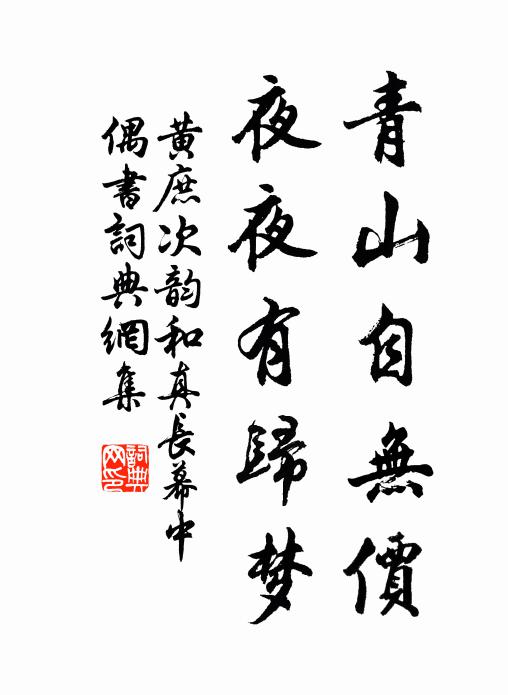 青山自無價
夜夜有歸梦
黄庶次韵和真長暮中
偶書詞典網集
詞典网印